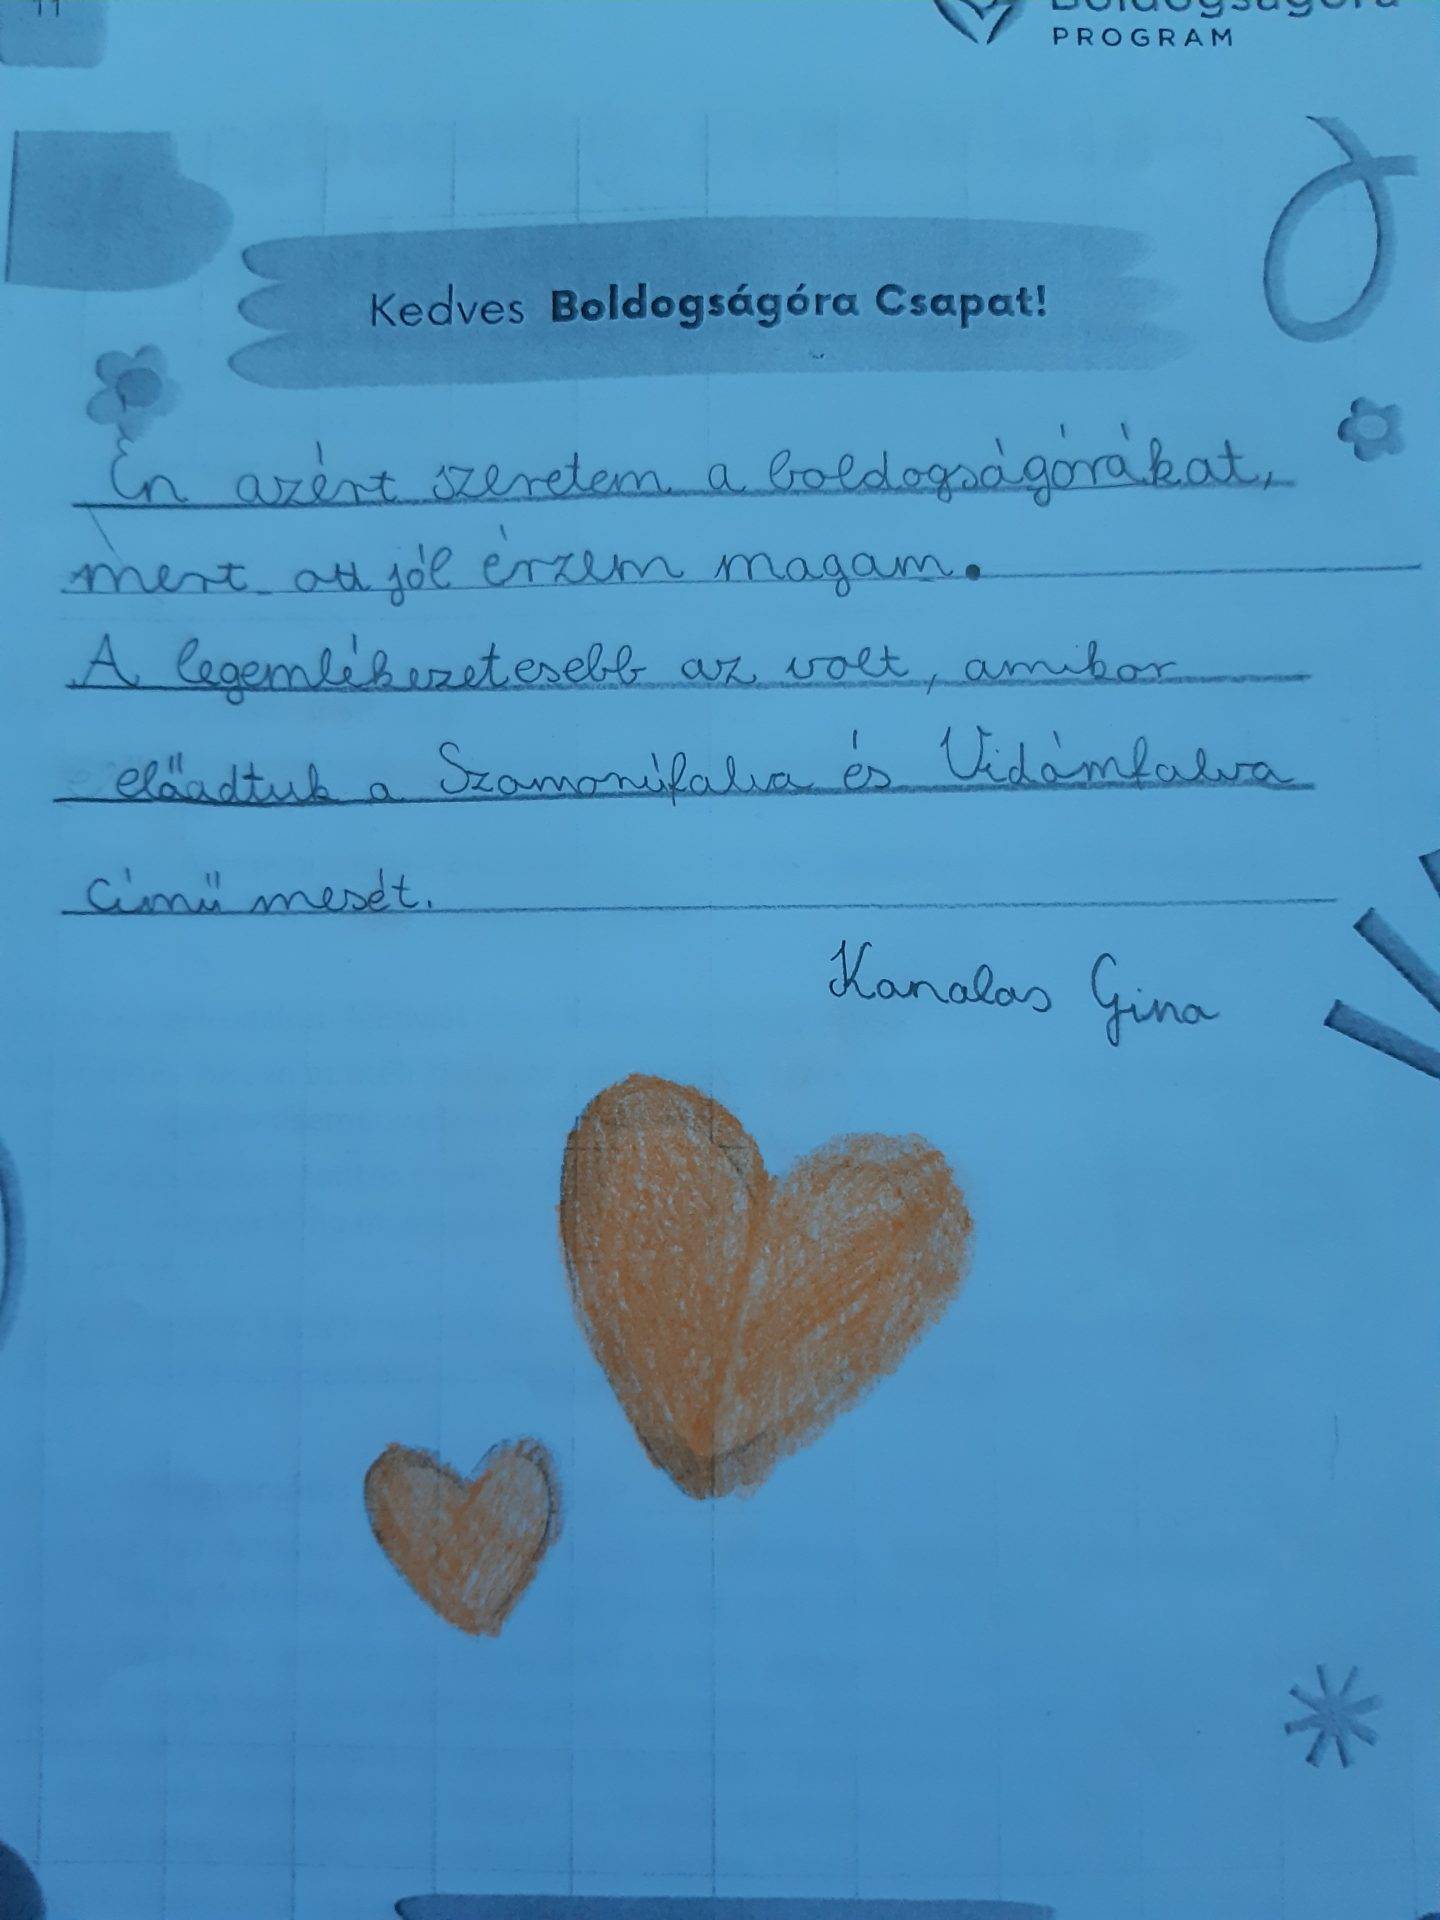 11
Boldogságóra
PROGRAM
Kedves Boldogságóra Csapat!
Én azért szeretem a boldogságórákat,
mert ott jól érzem magam.
A legemlékezetesebb az volt, amikor
előadtuk a Szomorúfalva és Vidámfalva
című mesét.
Kanalas Gina